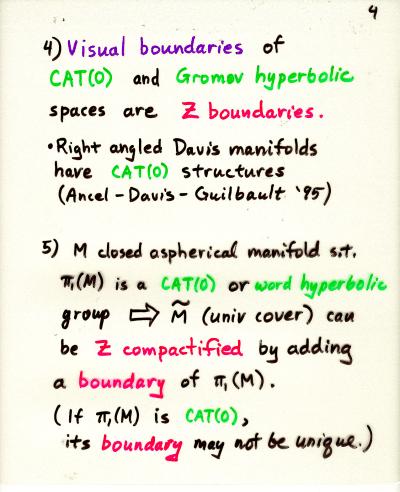 4
4) Visual boundaries of
CAT(0) and Gromov hyperbolic
spaces are Z boundaries.
• Right angled Davis manifolds
have CAT(0) structures
(Ancel - Davis - Guilbault '95)
5) M closed aspherical manifold s.t.
π₁(M) is a CAT(0) or word hyperbolic
group ⇨ M̃ (univ cover) can
be Z compactified by adding
a boundary of π₁(M).
(If π₁(M) is CAT(0),
its boundary may not be unique.)